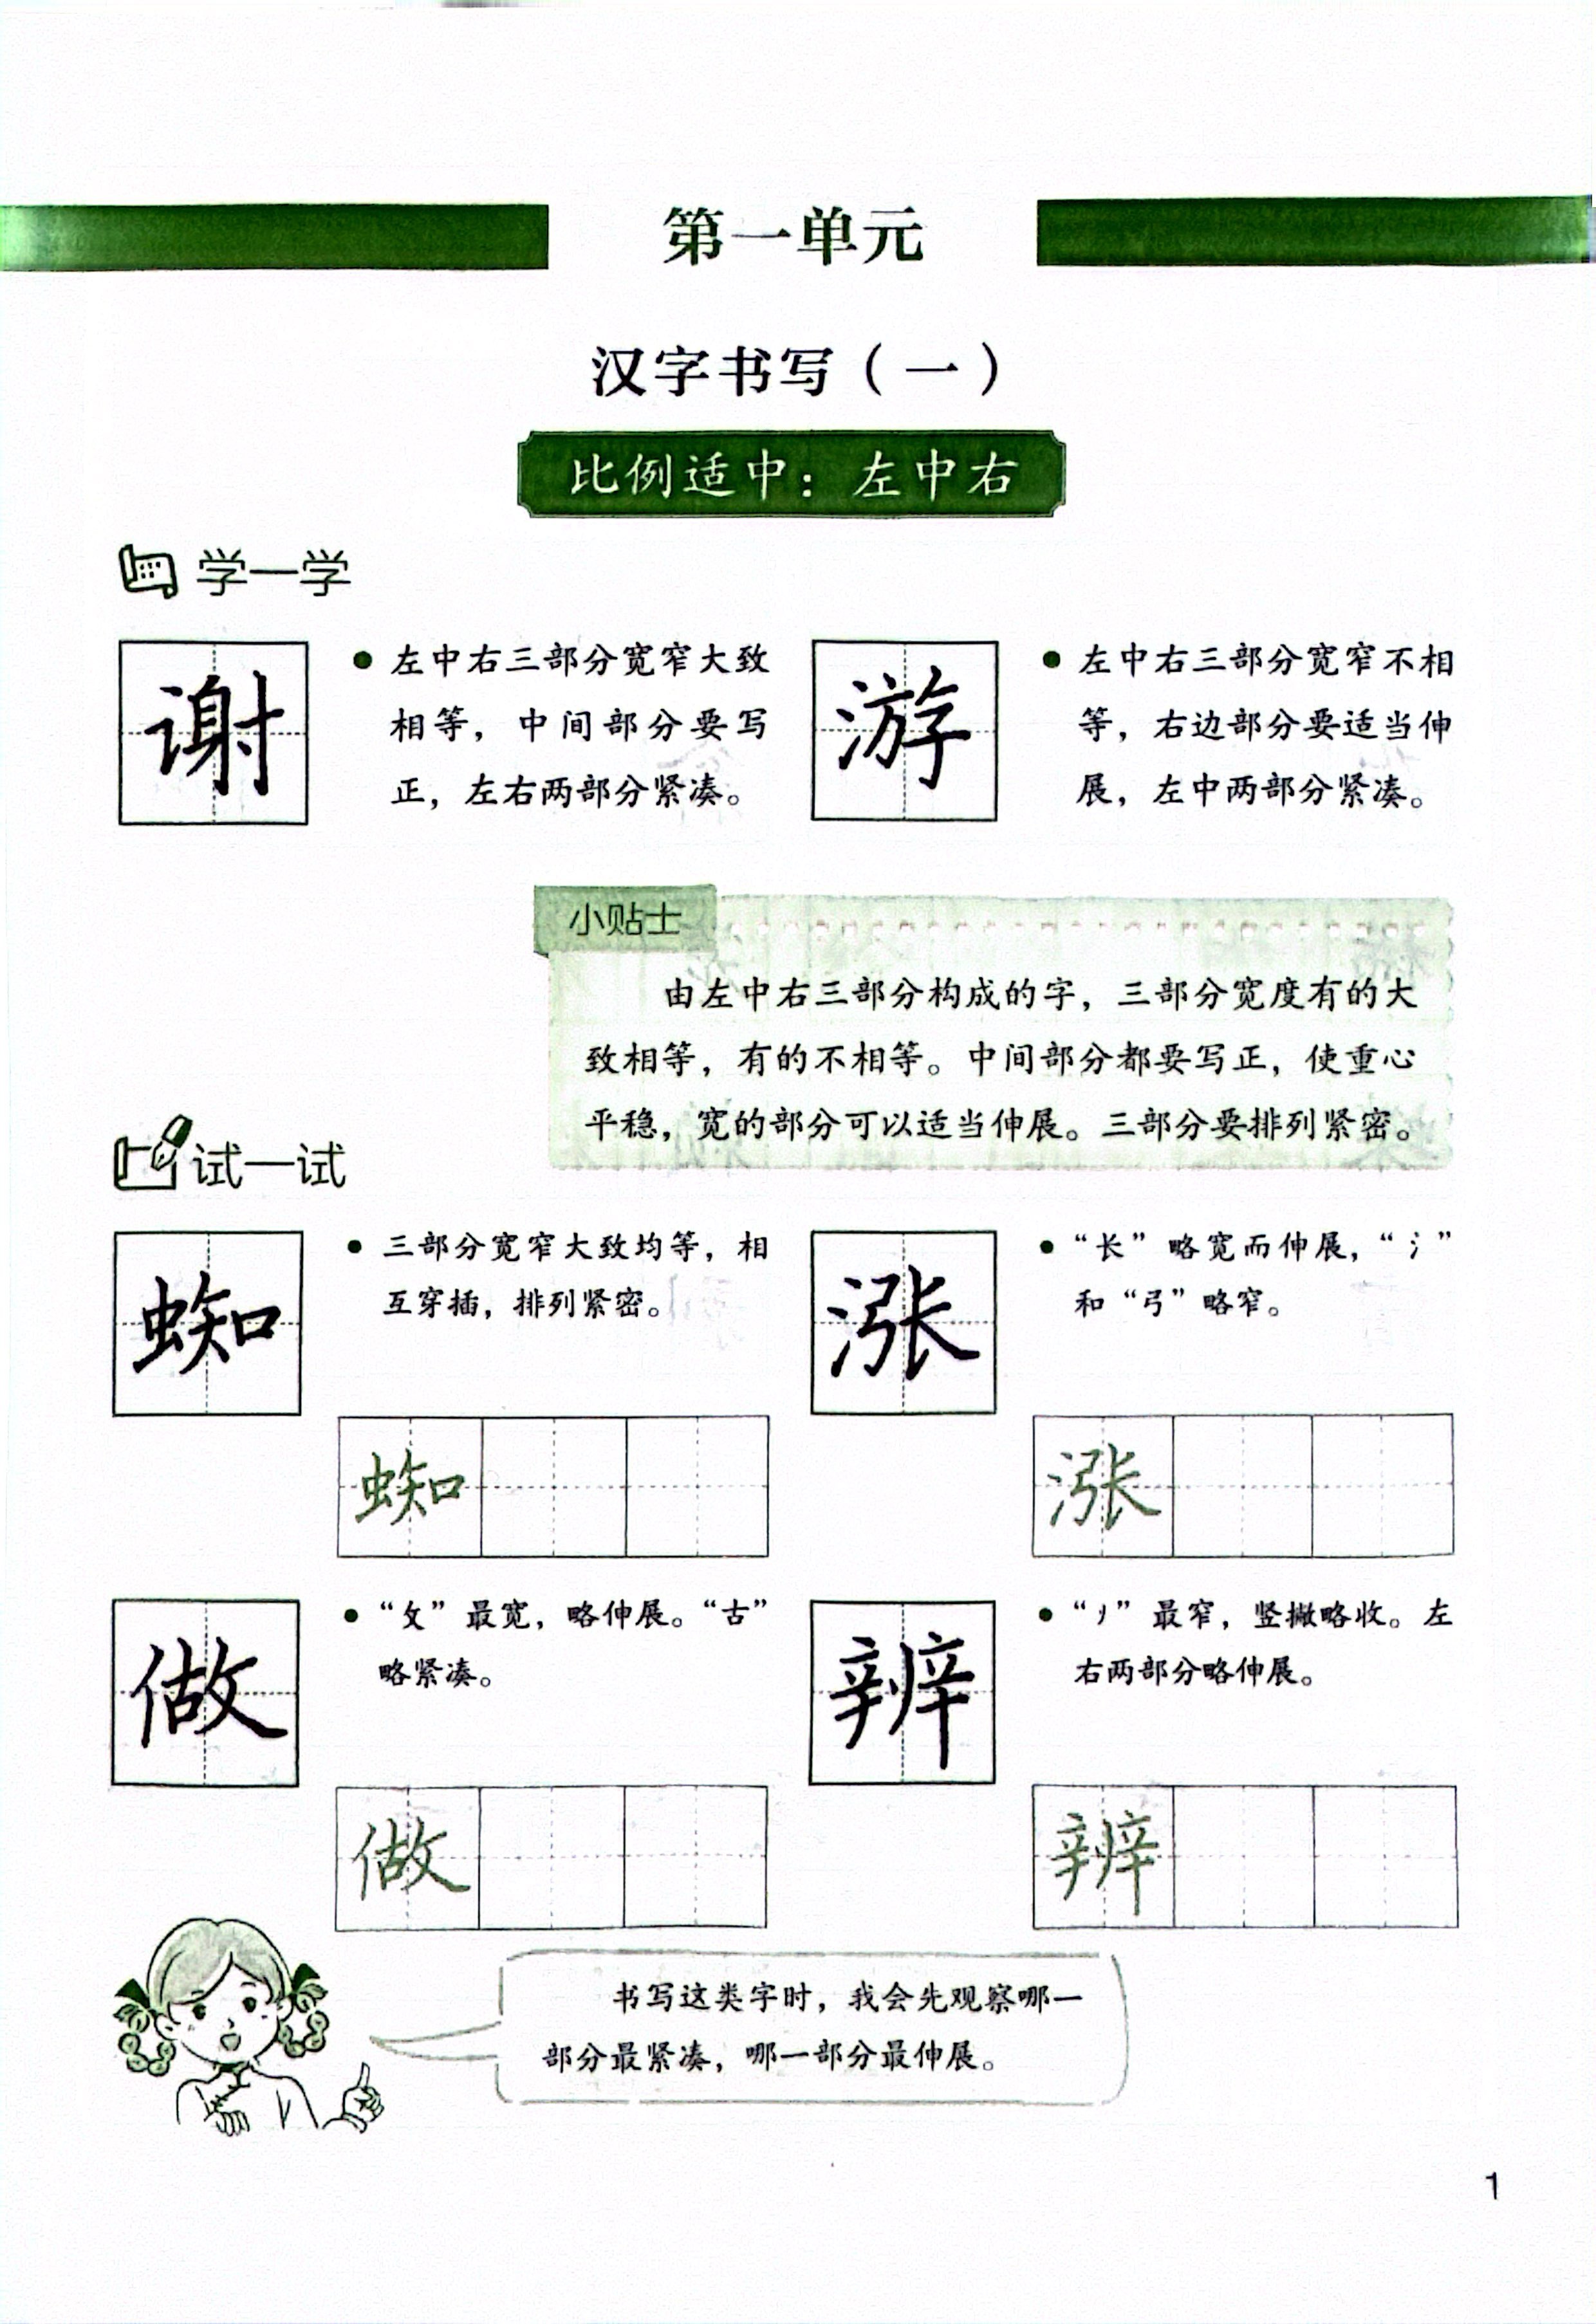 第一单元
汉字书写（一）
比例适中：左中右
学一学
谢
左中右三部分宽窄大致
相等，中间部分要写
正，左右两部分紧凑。
游
左中右三部分宽窄不相
等，右边部分要适当伸
展，左中两部分紧凑。
小贴士
由左中右三部分构成的字，三部分宽度有的大
致相等，有的不相等。中间部分都要写正，使重心
平稳，宽的部分可以适当伸展。三部分要排列紧密。
试一试
蜘
三部分宽窄大致均等，相
互穿插，排列紧密。
蜘
涨
“长”略宽而伸展，“氵”
和“弓”略窄。
涨
做
“攵”最宽，略伸展。“古”
略紧凑。
做
辨
“丿”最窄，竖撇略收。左
右两部分略伸展。
辨
书写这类字时，我会先观察哪一
部分最紧凑，哪一部分最伸展。
1